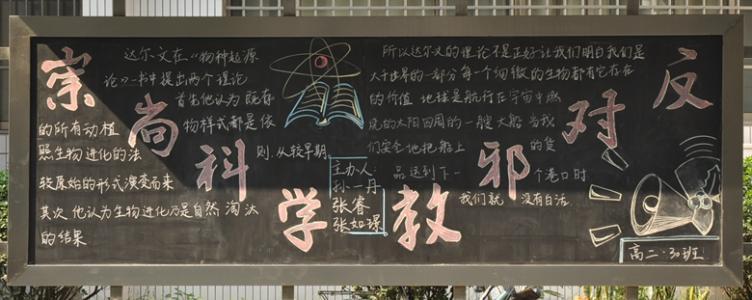 崇尚科学
反对邪教
达尔文在《物种起源
论》一书中提出两个理论
首先他认为 既存
的所有动植
物样式都是依
照生物进化的法
则.从较早期
较原始的形式演变而来
其次 他认为生物进化乃是自然淘汰
的结果
主办人:
孙一丹
张睿
张如璟
所以达尔文的理论不是正好让我们明白我们是
大千世界的一部分 每一个细微的生物都有它存在
的价值 地球是航行在宇宙中燃
烧的太阳四周的一艘大船 当我
们安全地把船上 的货
品送到下一 个港口时
我们就 没有白活
高二·30班